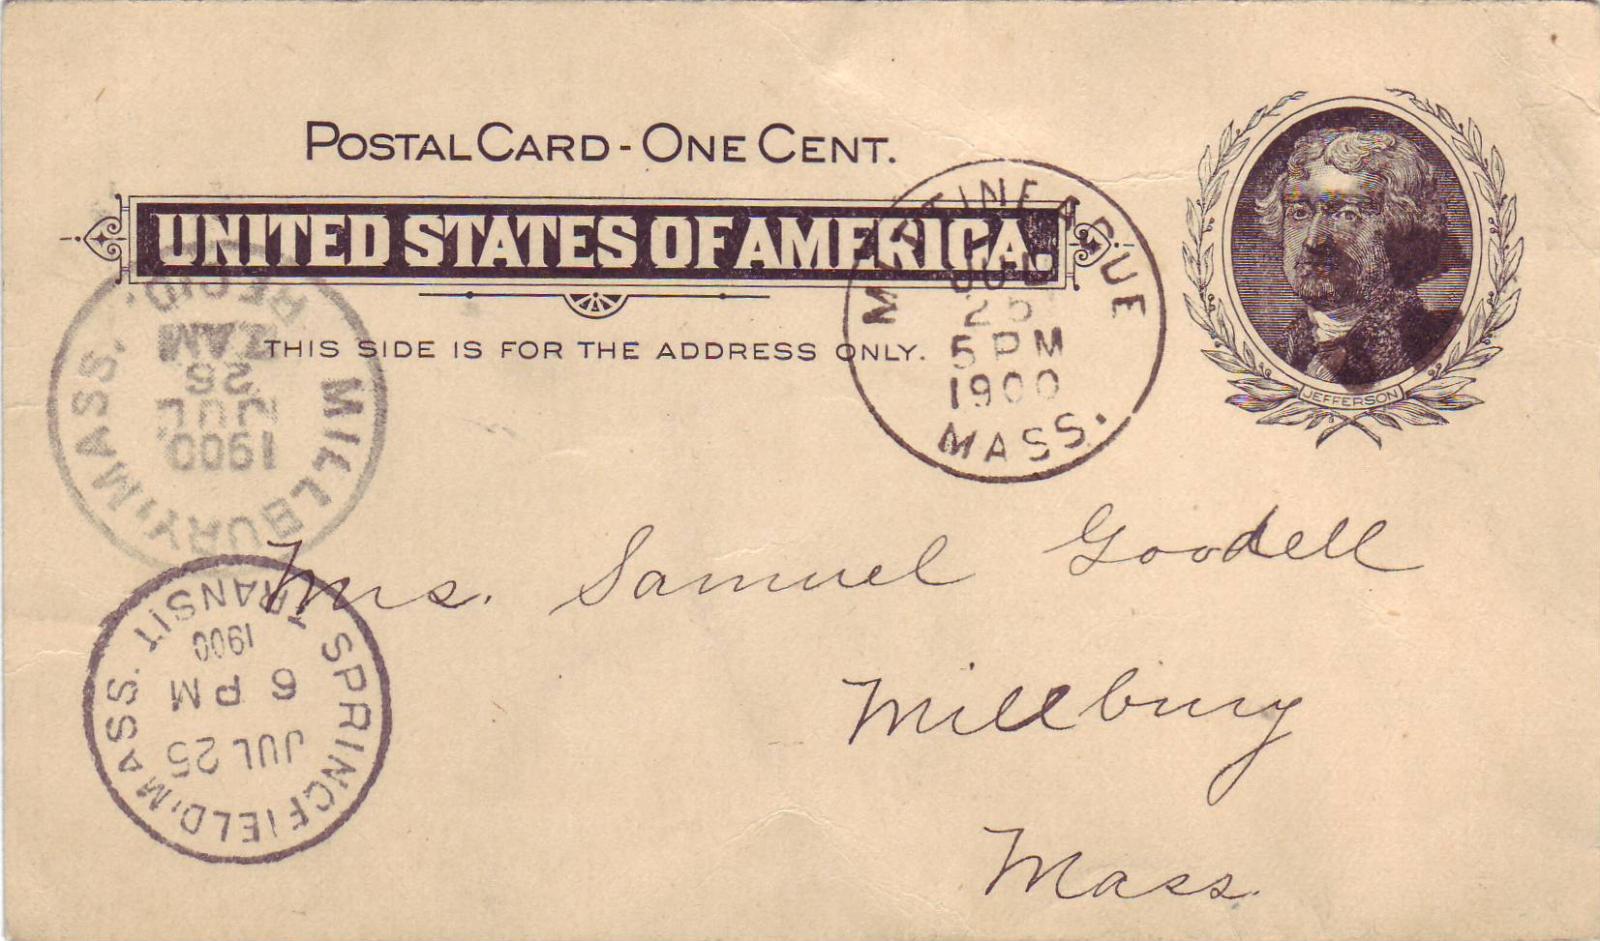 POSTAL CARD - ONE CENT.
UNITED STATES OF AMERICA.
THIS SIDE IS FOR THE ADDRESS ONLY.
JEFFERSON
JUL
25
5 PM
1900
MASS.
MILLBURY, MASS. REC'D.
7 AM
26
JUL
1900
Mrs. Samuel Goodell
Millbury
Mass.
SPRINGFIELD, MASS. TRANSIT
JUL 25
6 PM
1900